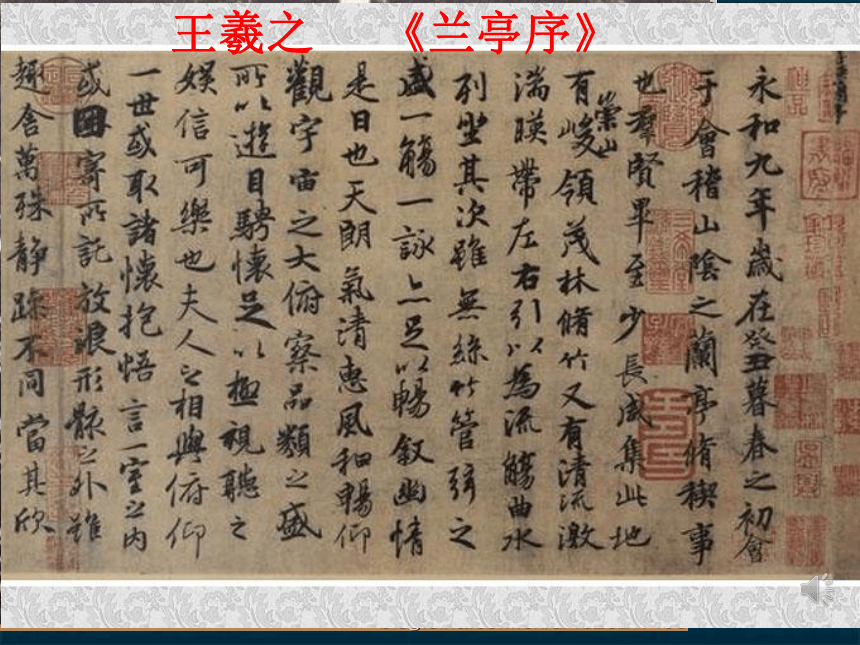 王羲之 《兰亭序》
永和九年歲在癸丑暮春之初會
于會稽山陰之蘭亭脩稧事
也羣賢畢至少長咸集此地
有崇山峻領茂林脩竹又有清流激
湍暎帶左右引以為流觴曲水
列坐其次雖無絲竹管弦之
盛一觴一詠亦足以暢叙幽情
是日也天朗氣清惠風和暢仰
觀宇宙之大俯察品類之盛
所以遊目騁懷足以極視聽之
娛信可樂也夫人之相與俯仰
一世或取諸懷抱悟言一室之内
或因寄所託放浪形骸之外雖
趣舍萬殊静躁不同當其欣